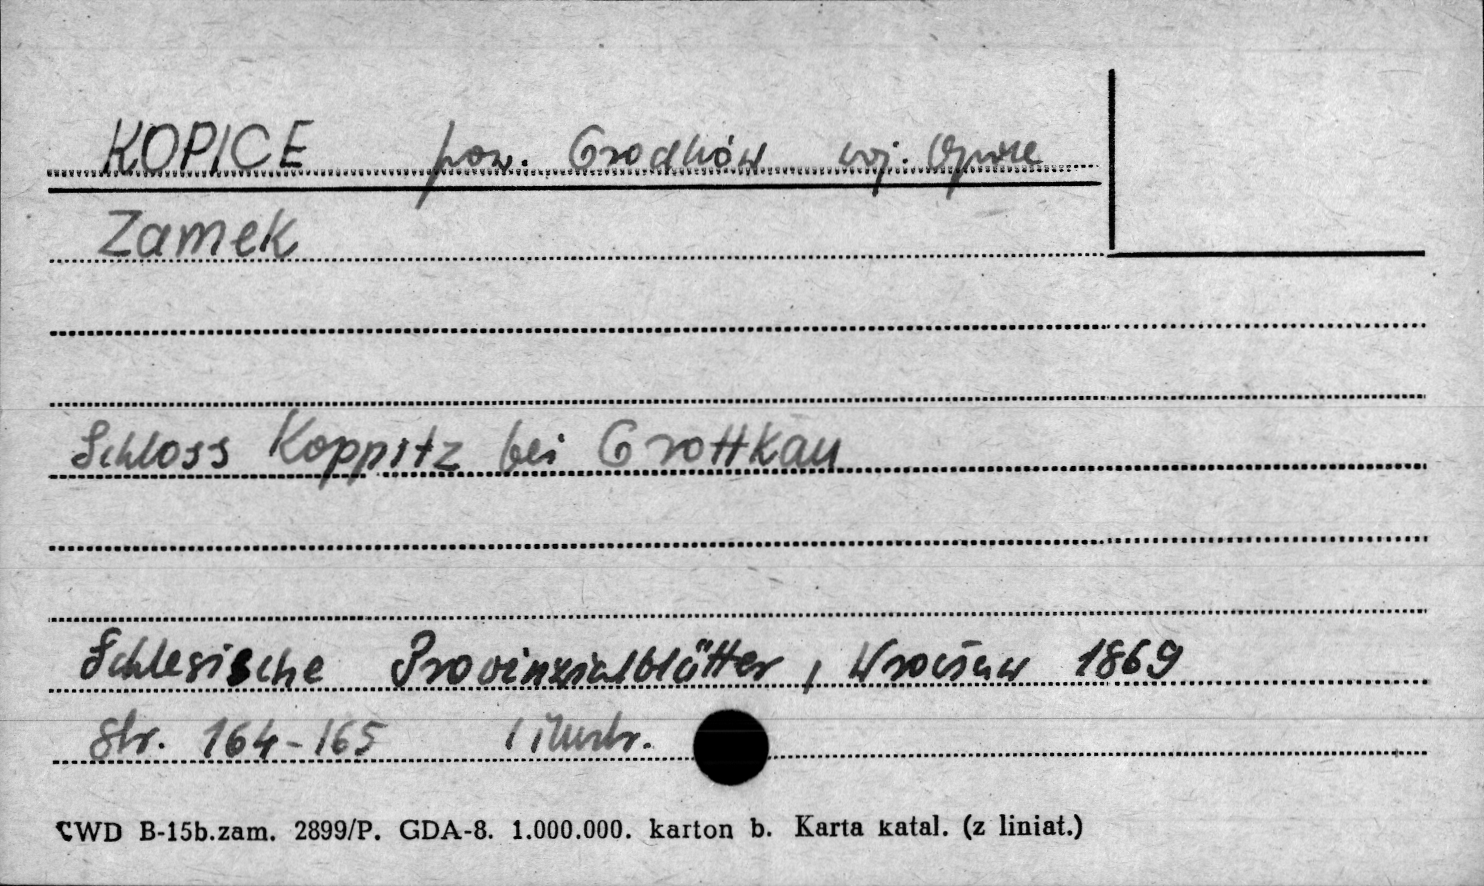 KOPICE pow. Grodków woj. Opole
Zamek
Schloss Koppitz bei Grottkau
Schlesische Provinzialblätter, Wrocław 1869
Str. 164-165 1 ilustr.
CWD B-15b.zam. 2899/P. GDA-8. 1.000.000. karton b. Karta katal. (z liniat.)